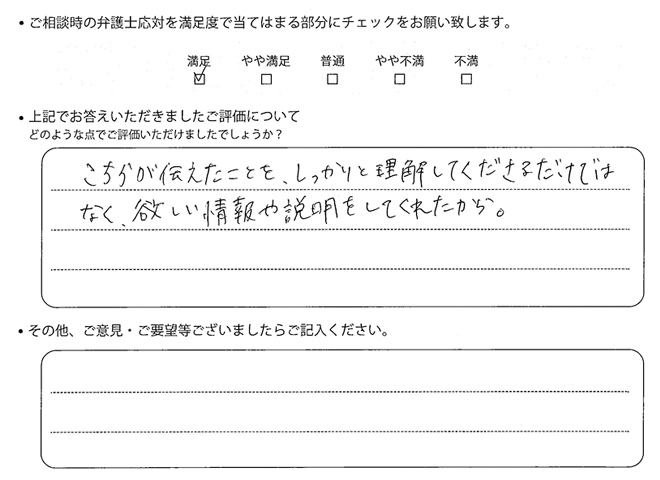 ・ご相談時の弁護士応対を満足度で当てはまる部分にチェックをお願い致します。
満足 やや満足 普通 やや不満 不満
・上記でお答えいただきましたご評価について
どのような点でご評価いただけましたでしょうか？
こちらが伝えたことを、しっかりと理解してくださるだけでは
なく、欲しい情報や説明をしてくれたから。
・その他、ご意見・ご要望等ございましたらご記入ください。